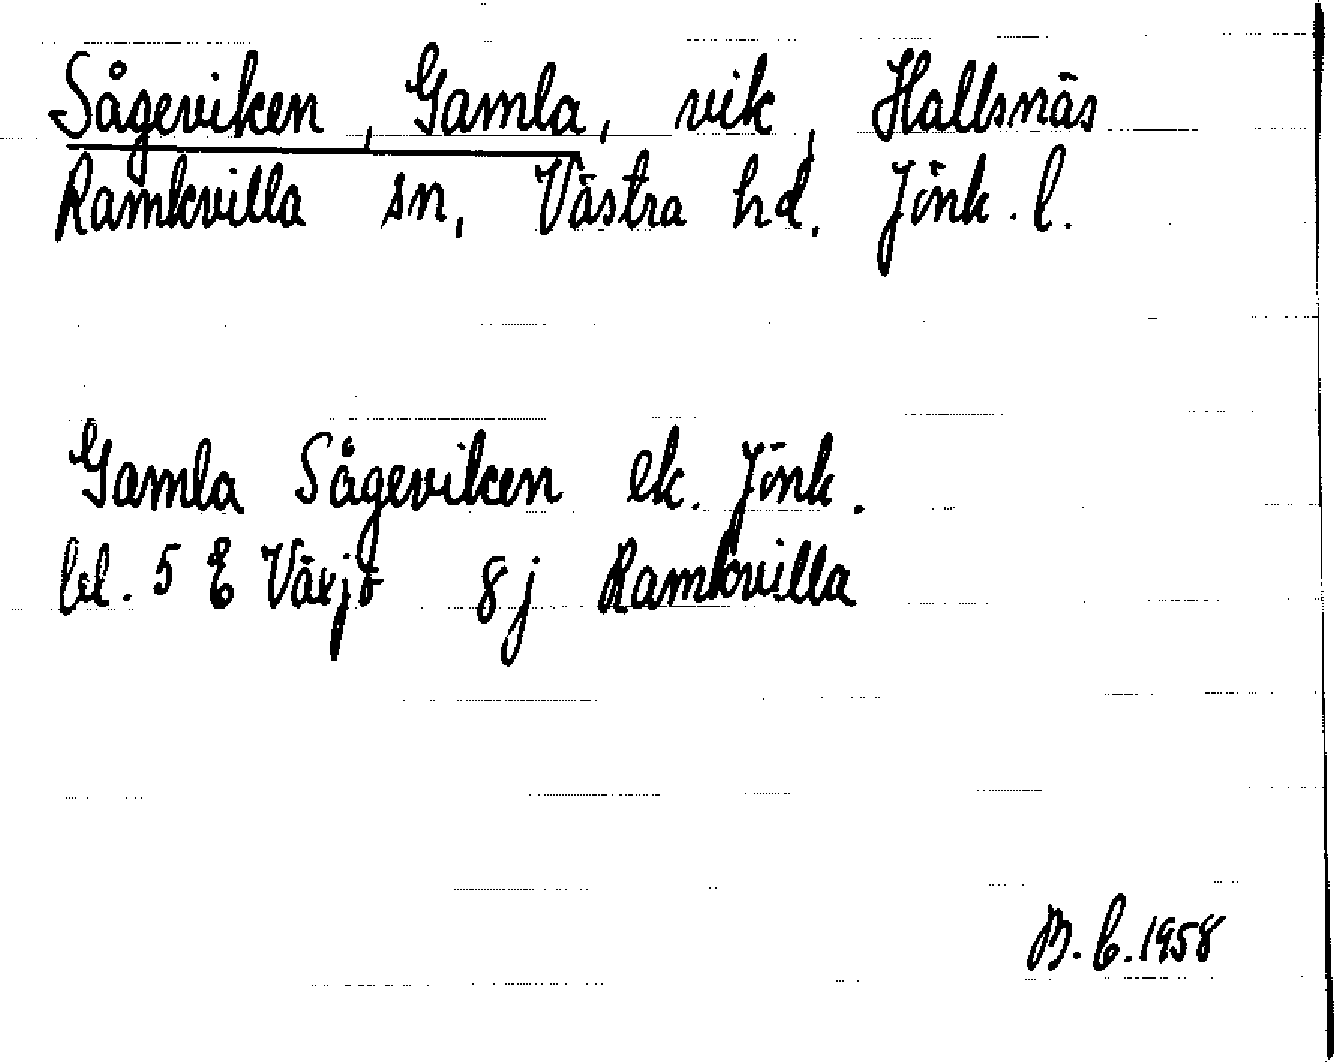 Sågeviken, Gamla, vik, Hallsnäs
Ramkvilla sn, Västra hd, Jönk. l.
Gamla Sågeviken ek. Jönk.
bl. 5 E Växjö 8 j Ramkvilla
B. C. 1958